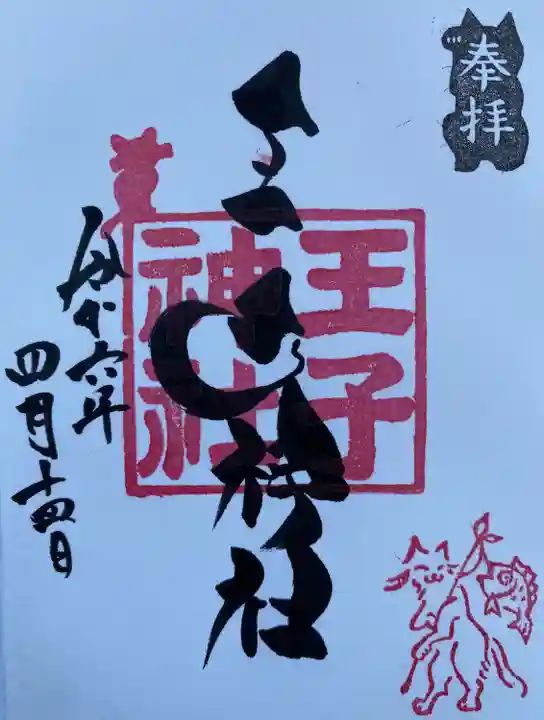 奉拝
王子神社
王子
神社
令和六年
四月十四日